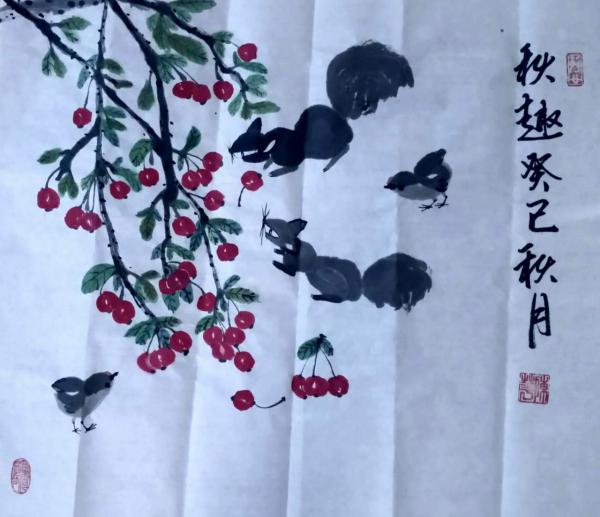 秋趣癸巳秋月